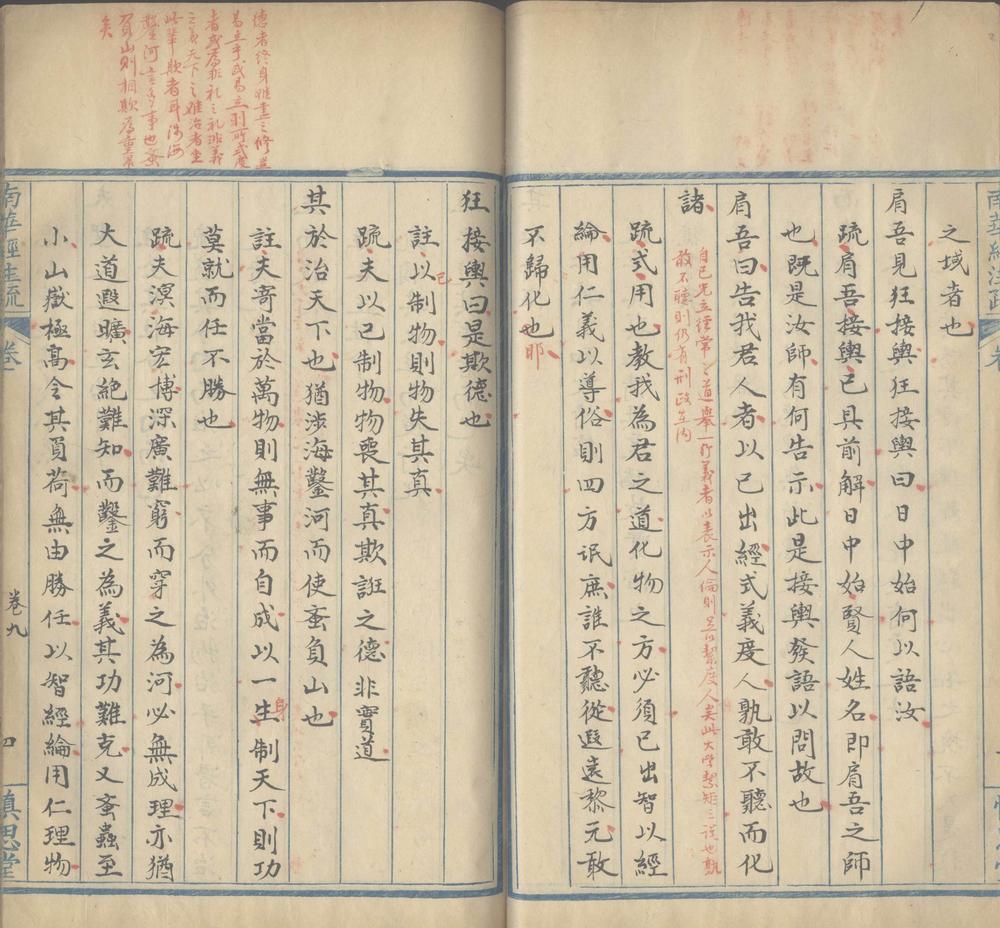 之域者也
肩吾見狂接輿狂接輿曰日中始何以語汝
疏肩吾接輿已具前解日中始賢人姓名即肩吾之師
也既是汝師有何告示此是接輿發語以問故也
肩吾曰告我君人者以已出經式義度人孰敢不聽而化
諸
自己先立經常之道舉一行義者以表示人倫則是以絜度人矣此大學絜矩之說也孰
敢不聽則仍有刑政在內
疏式用也教我為君之道化物之方必須已出智以經
綸用仁義以導俗則四方氓庶誰不聽從遐遠黎元敢
不歸化也耶
德者終身
為
者或為非禮之禮非義
之義天下之難治者坐
此輩欺者耳涉海
鑿河言多事也蚉
負山則相欺為重
矣
狂接輿曰是欺德也
註以己制物則物失其真
疏夫以已制物物喪其真欺誑之德非實道
其於治天下也猶涉海鑿河而使蚉負山也
註夫寄當於萬物則無事而自成以一生身制天下則功
莫就而任不勝也
疏夫溟海宏博深廣難窮而穿之為河必無成理亦猶
大道遐曠玄絕難知而鑿之為義其功難克又蚉蟲至
小山嶽極高令其負荷無由勝任以智經綸用仁理物
南華經注疏
卷九
四
慎思堂